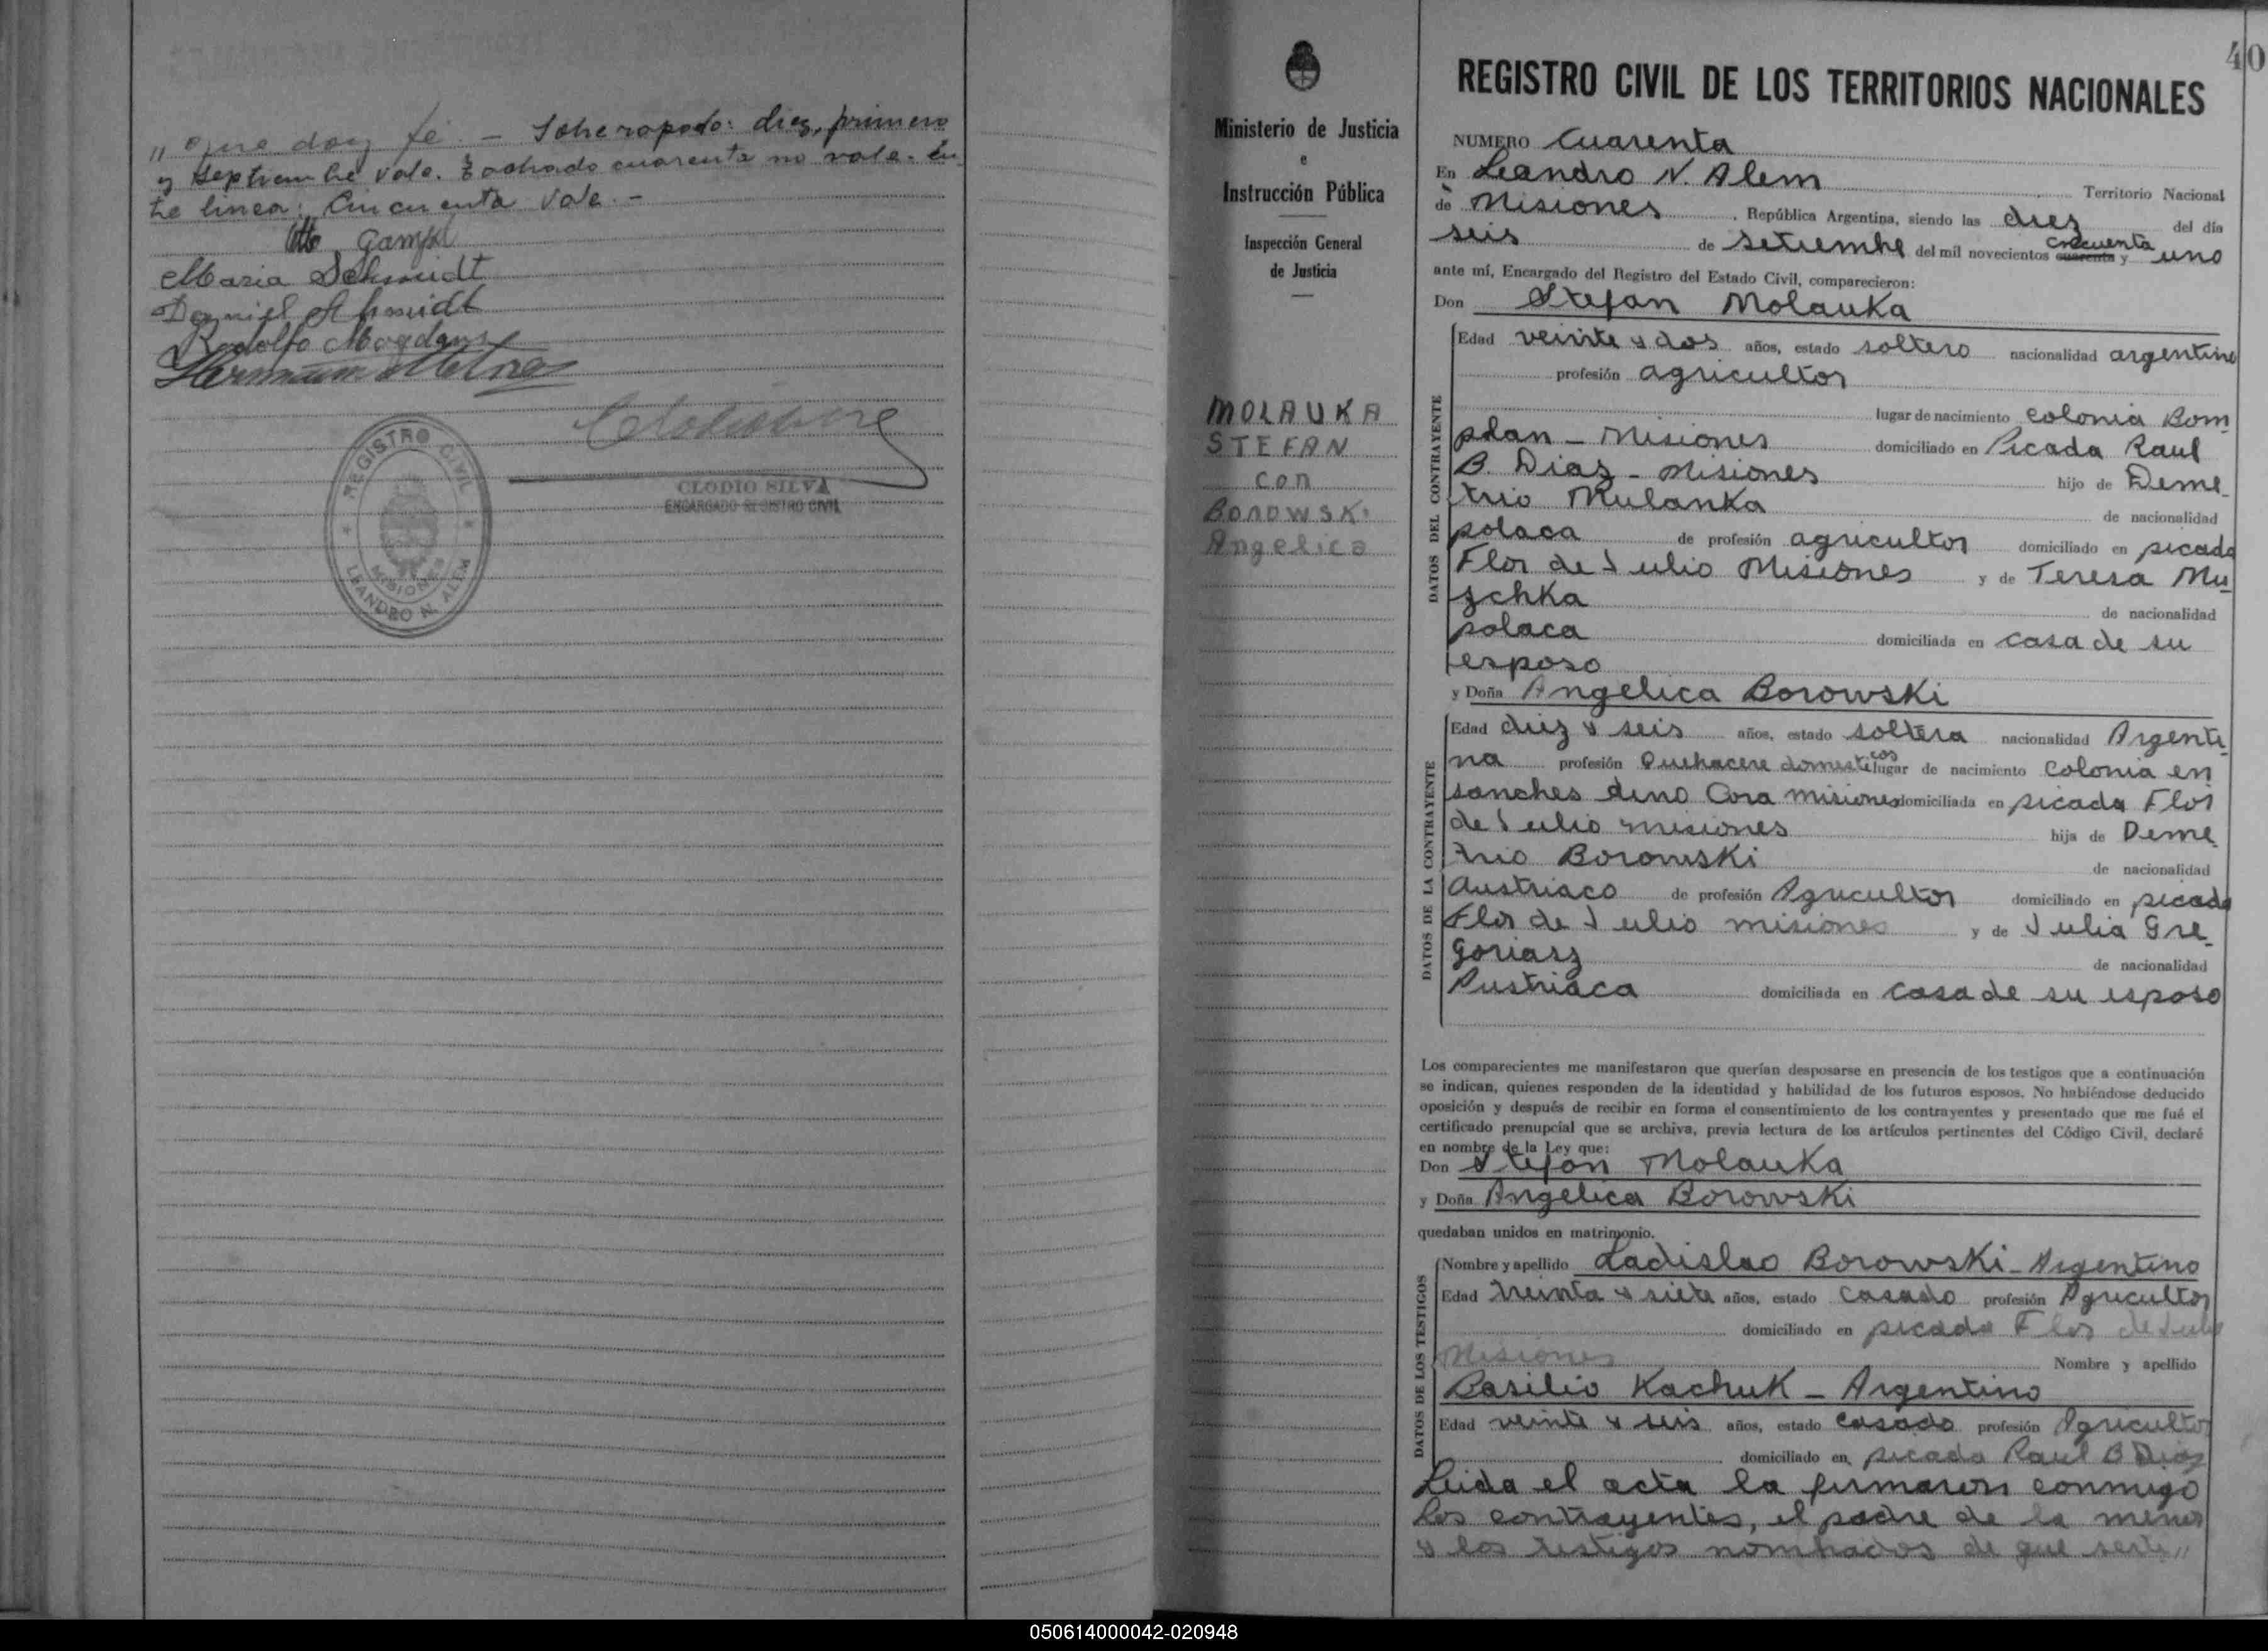 " que doy fé. - Sobreraspado: diez, primero
y Septiembre vale. Tachado cuarenta no vale. En
tre linea: Cincuenta Vale. -
Otto Gampel
Maria Schmidt
Daniel Schmidt
Rodolfo Magdans
Hermann
CLODIO SILVA
ENCARGADO REGISTRO CIVIL
REGISTRO CIVIL
MISIONES
LEANDRO N. ALEM
40
Ministerio de Justicia
e
Instrucción Pública
Inspección General
de Justicia
MOLAUKA
STEFAN
con
BOROWSKI
Angelica
REGISTRO CIVIL DE LOS TERRITORIOS NACIONALES
NUMERO Cuarenta
En Leandro N. Alem Territorio Nacional
de Misiones, República Argentina, siendo las diez del día
seis de Setiembre del mil novecientos cuarenta cincuenta y uno
ante mí, Encargado del Registro del Estado Civil, comparecieron:
Don Stefan Molauka
DATOS DEL CONTRAYENTE
Edad veinte y dos años, estado soltero nacionalidad argentino
profesión agricultor
lugar de nacimiento Colonia Bom
plan - Misiones domiciliado en Picada Raul
B. Diaz - Misiones hijo de Deme-
trio Mulanka de nacionalidad
polaca de profesión agricultor domiciliado en picada
Flor de Julio Misiones y de Teresa Mu-
schka de nacionalidad
polaca domiciliada en casa de su
esposo
y Doña Angelica Borowski
DATOS DE LA CONTRAYENTE
Edad diez y seis años, estado soltera nacionalidad Argenti-
na profesión Quehacere domesticos lugar de nacimiento Colonia en
sanches dino Cora Misiones domiciliada en picada Flor
de Julio misiones hija de Deme
trio Borowski de nacionalidad
Austriaco de profesión Agricultor domiciliado en picada
Flor de Julio misiones y de Julia Gre-
goriasz de nacionalidad
Austriaca domiciliada en casa de su esposo
Los comparecientes me manifestaron que querían desposarse en presencia de los testigos que a continuación
se indican, quienes responden de la identidad y habilidad de los futuros esposos. No habiéndose deducido
oposición y después de recibir en forma el consentimiento de los contrayentes y presentado que me fué el
certificado prenupcial que se archiva, previa lectura de los artículos pertinentes del Código Civil, declaré
en nombre de la Ley que:
Don Stefan Molauka
y Doña Angelica Borowski
quedaban unidos en matrimonio.
DATOS DE LOS TESTIGOS
Nombre y apellido Ladislao Borowski - Argentino
Edad treinta y siete años, estado Casado profesión Agricultor
domiciliado en picada Flor de Julio
Misiones Nombre y apellido
Basilio Kachuk - Argentino
Edad veinte y seis años, estado Casado profesión Agricultor
domiciliado en picada Raul B Diaz
Leida el acta la firmaron conmigo
los contrayentes, el padre de la menor
y los testigos nombrados de que certi"
050614000042-020948